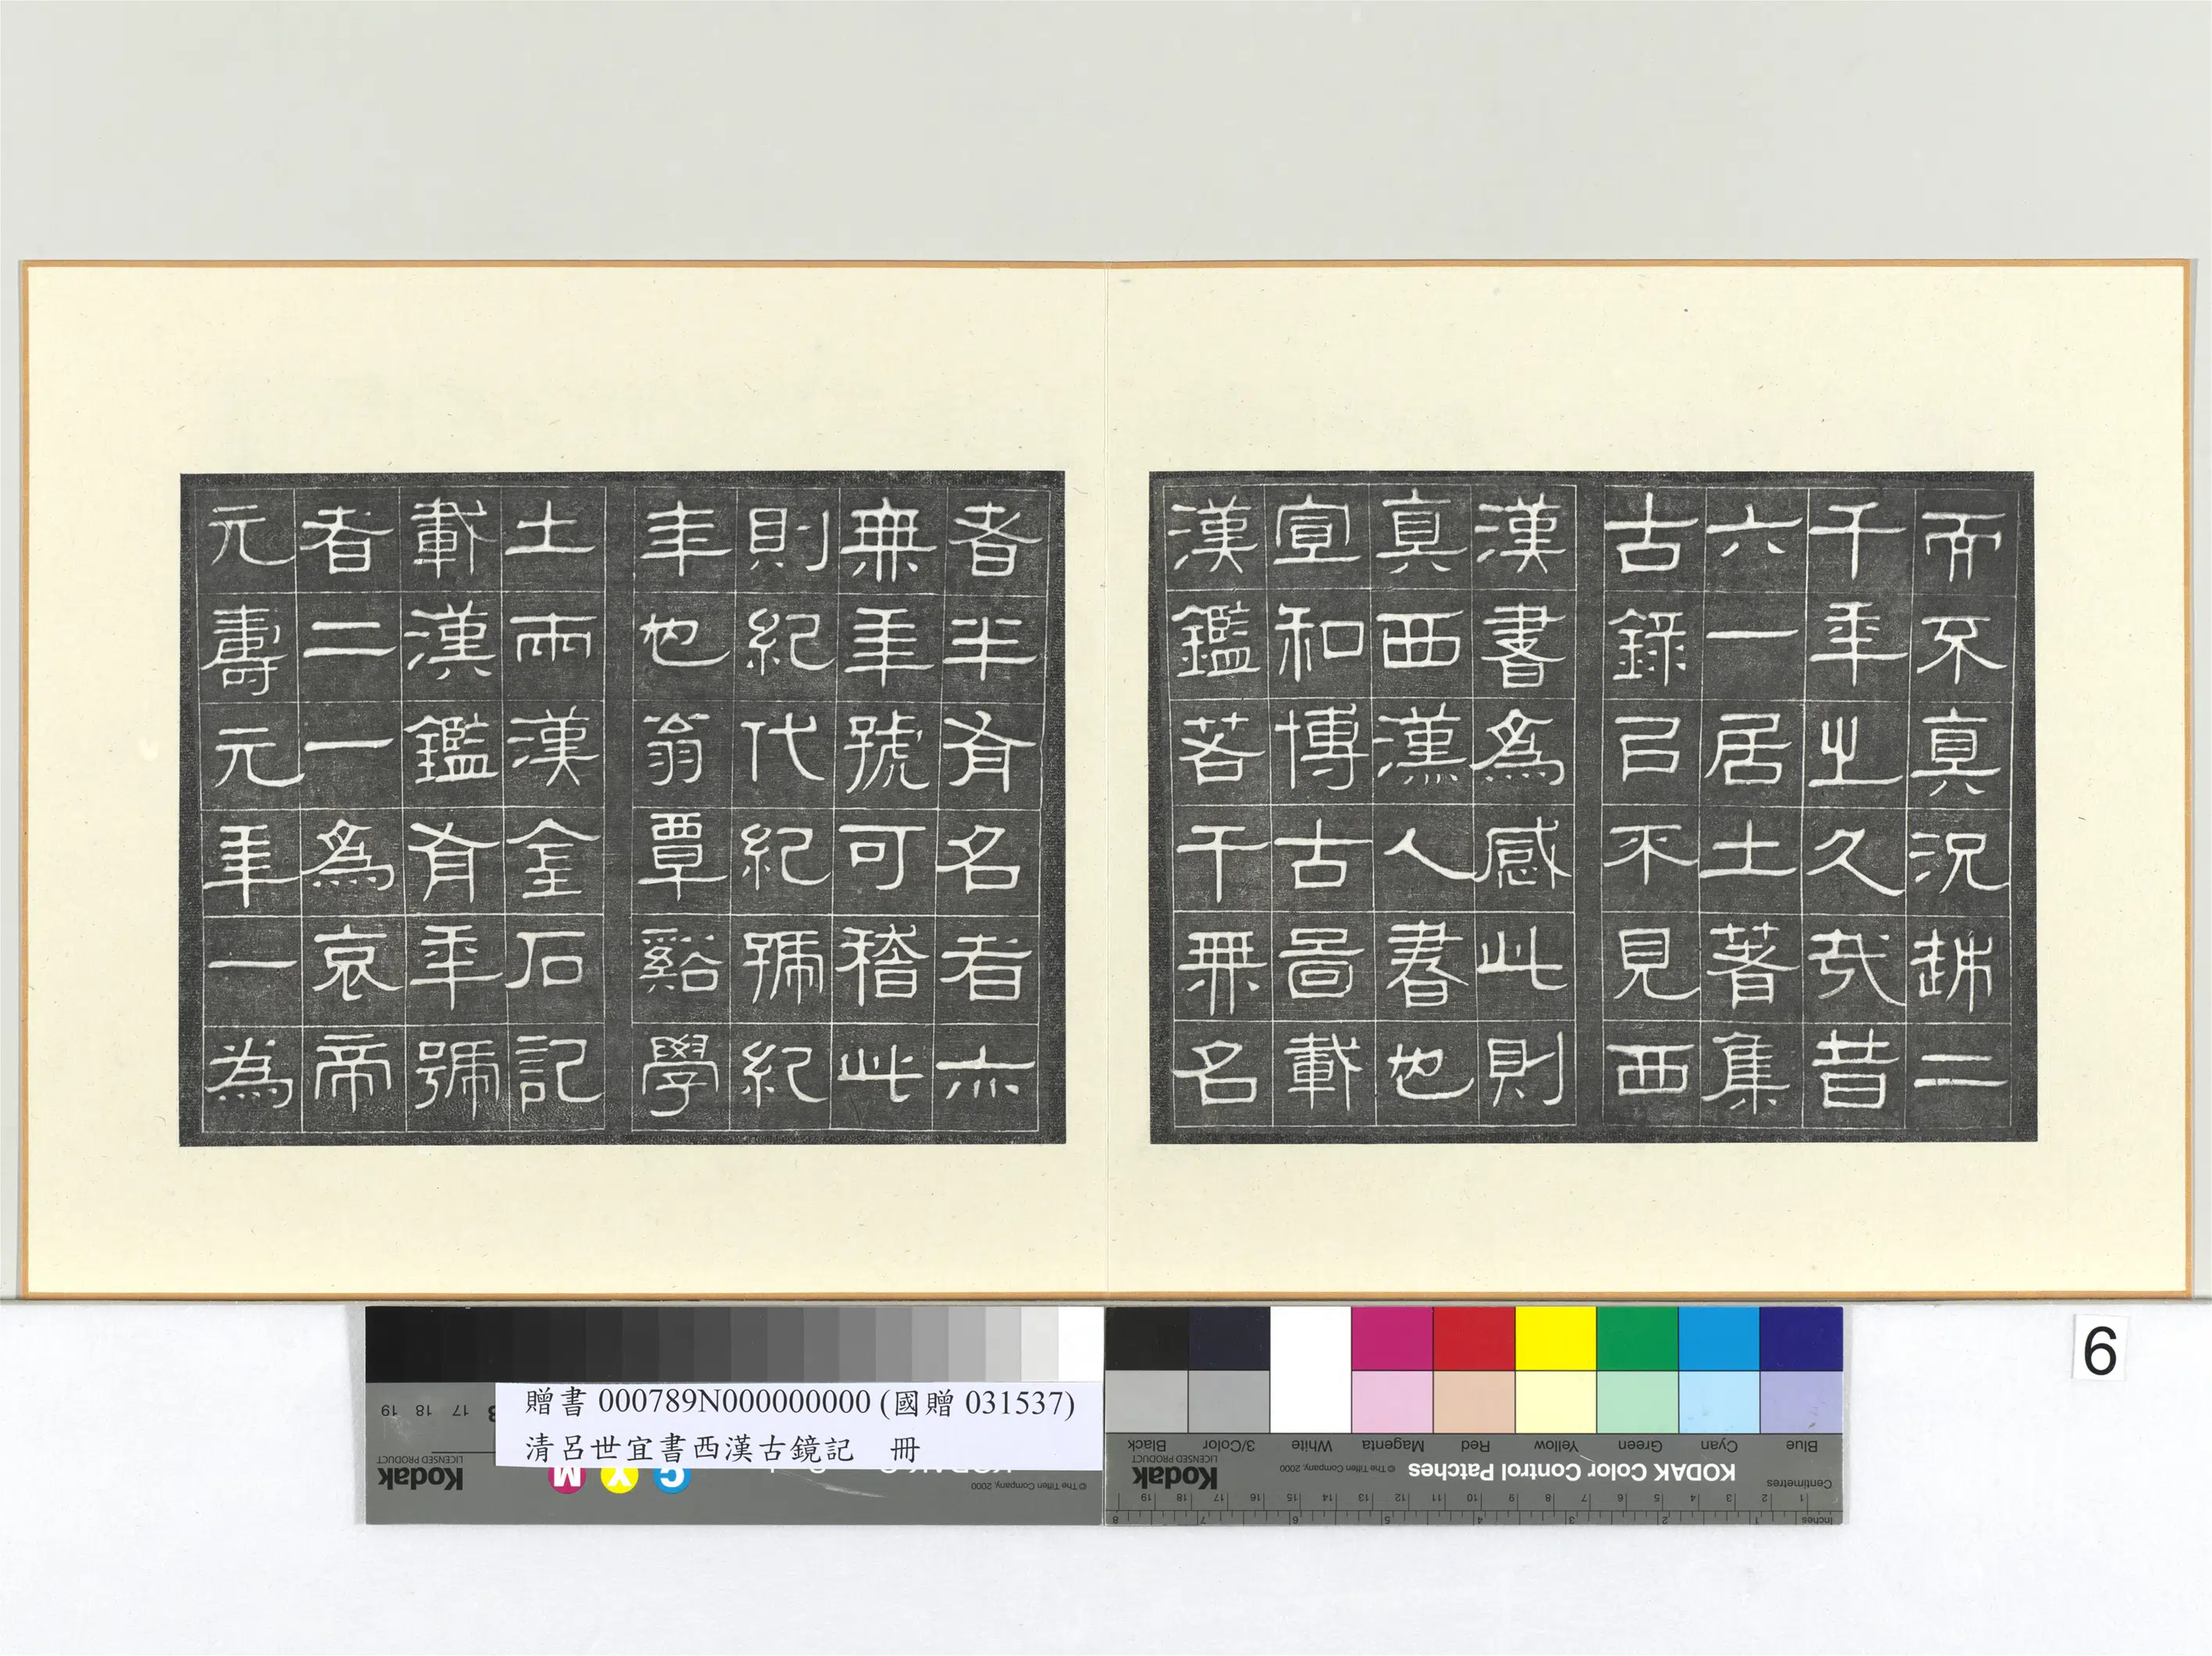 而不真況越二
千年之久哉昔
六一居士著集
古錄㠯不見西
漢書為感此則
真西漢人書也
宣和博古啚載
漢鑑若干無名
者半有名者亦
無年號可稽此
則紀代紀號紀
年也翁覃谿學
士兩漢金石記
載漢鑑有年號
者二一為哀帝
元壽元年一為
6
贈書 000789N000000000 (國贈 031537)
清呂世宜書西漢古鏡記　冊
Blue Cyan Green Yellow Red Magenta White 3/Color Black
KODAK Color Control Patches
© The Tiffen Company, 2000
Kodak
LICENSED PRODUCT
Centimetres 1 2 3 4 5 6 7 8 9 10 11 12 13 14 15 16 17 18 19
Inches 1 2 3 4 5 6 7 8
© The Tiffen Company, 2000
C Y M
Kodak
LICENSED PRODUCT
17 18 19